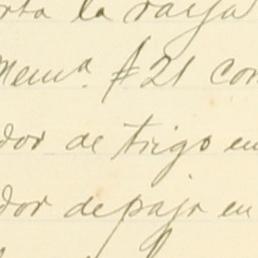 rta la raya
Mema. #21 con
dor de trigo en
dor de paja en